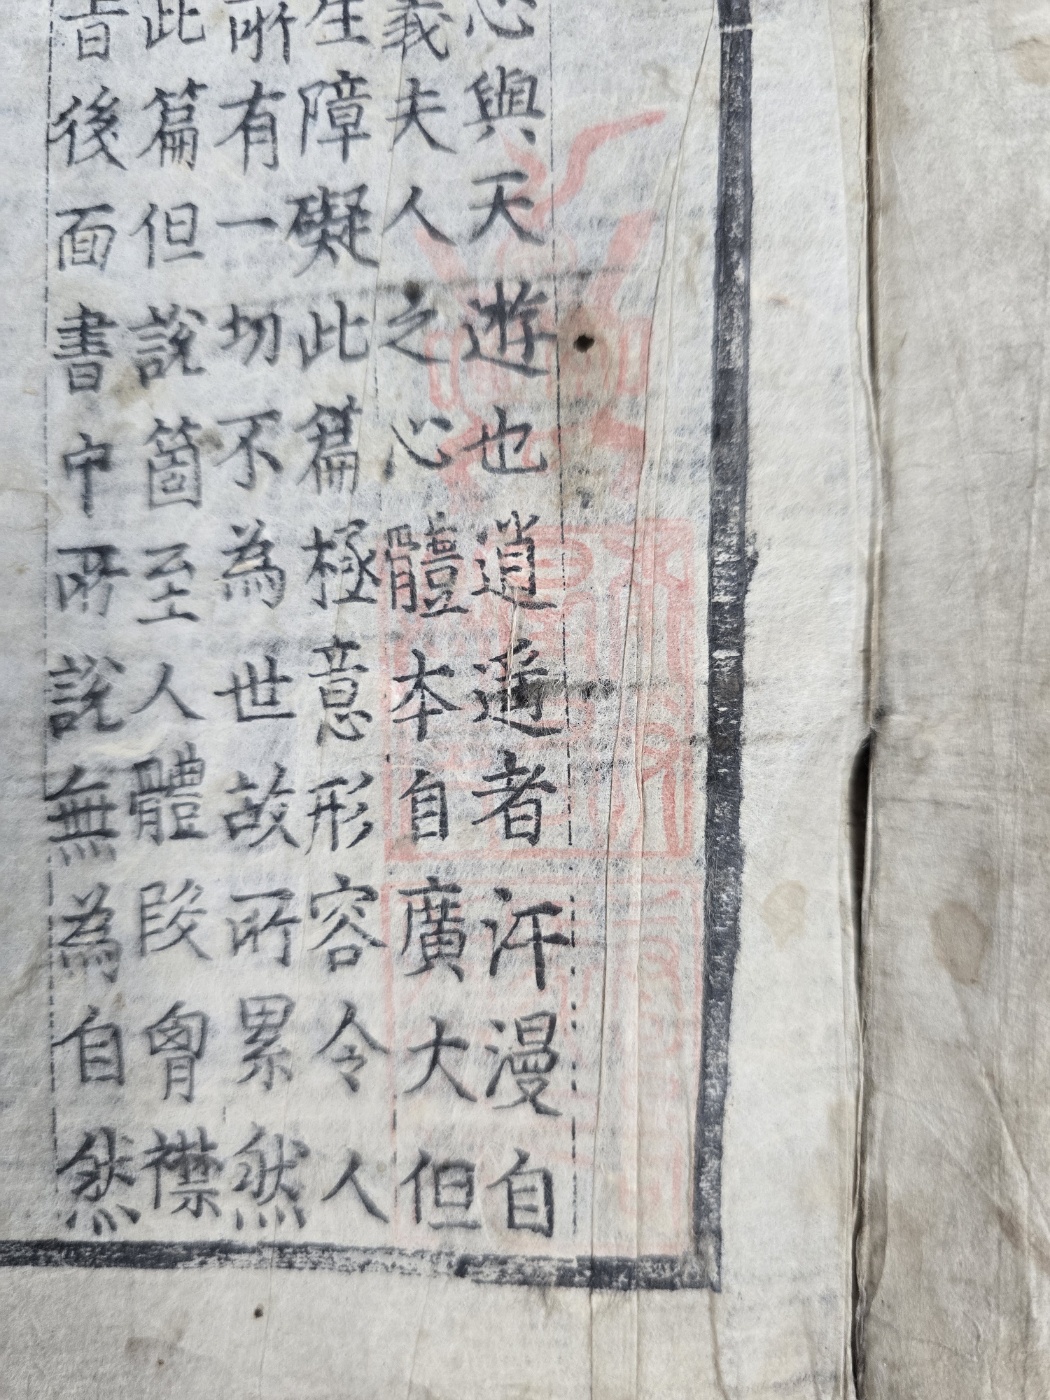 心與天遊也逍遥者汗漫自
義夫人之心體本自廣大但
生障礙此篇極意形容令人
所有一切不為世故所累然
此篇但說箇至人體段胷襟
者後面書中所說無為自然